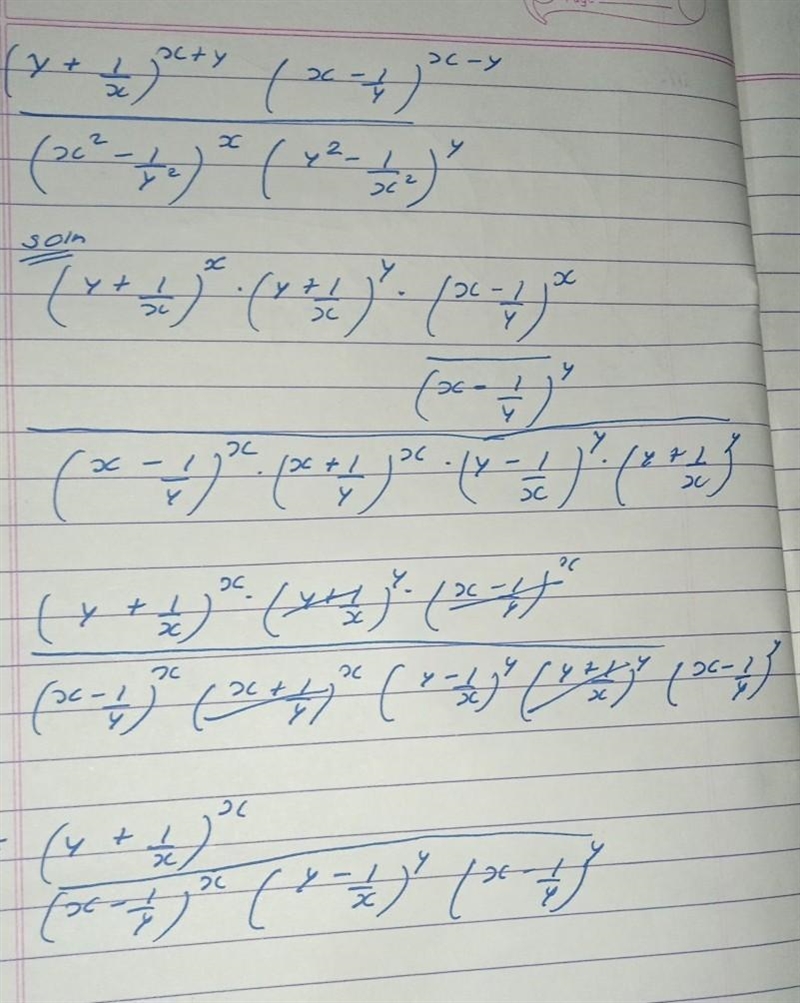 (y + 1/x)^(x+y) (x - 1/y)^(x-y)
(x² - 1/y²)^x (y² - 1/x²)^y
soln
(y + 1/x)^x · (y + 1/x)^y · (x - 1/y)^x
(x - 1/y)^y
(x - 1/y)^x · (x + 1/y)^x · (y - 1/x)^y · (y + 1/x)^y
(y + 1/x)^x · (y + 1/x)^y · (x - 1/y)^x
(x - 1/y)^x (x + 1/y)^x (y - 1/x)^y (y + 1/x)^y (x - 1/y)^y
(y + 1/x)^x
(x - 1/y)^x (y - 1/x)^y (x - 1/y)^y